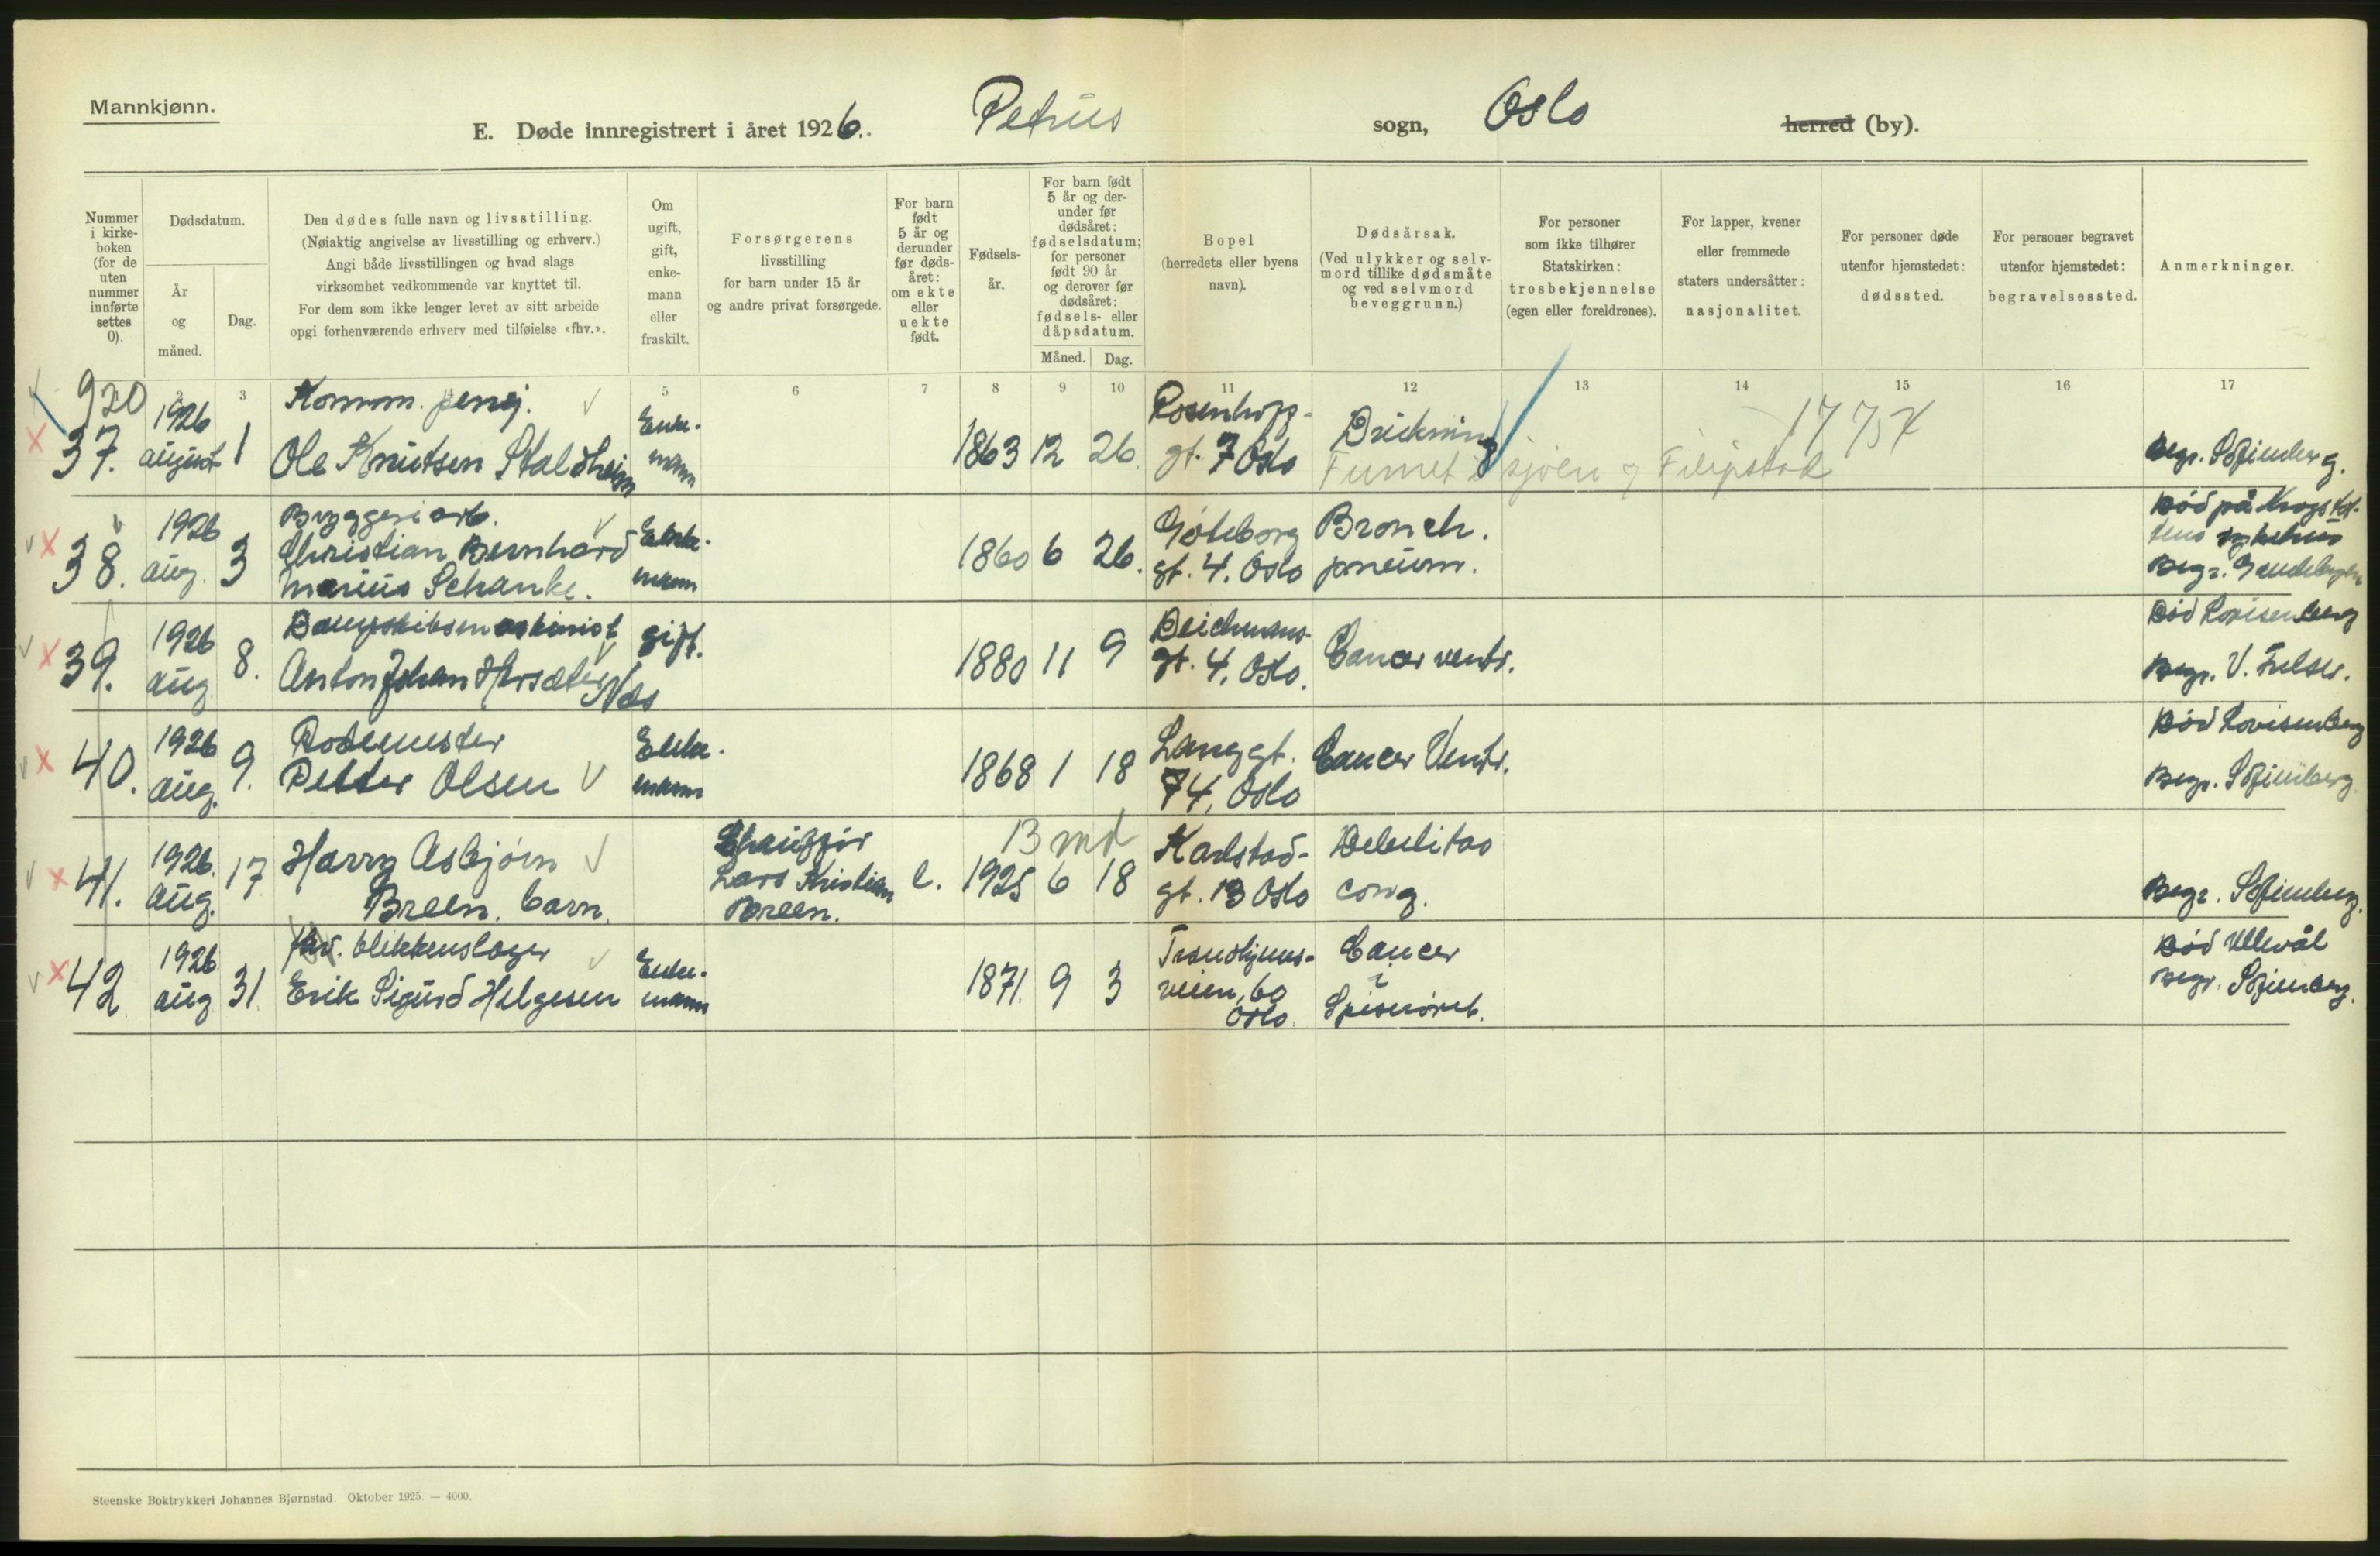 Mannkjønn.
E. Døde innregistrert i året 1926. Petrus sogn, Oslo herred (by).
Nummer i kirke-boken (for de uten nummer innførte settes 0).
Dødsdatum.
År og måned.
Dag.
Den dødes fulle navn og livsstilling.
(Nøiaktig angivelse av livsstilling og erhverv.)
Angi både livsstillingen og hvad slags
virksomhet vedkommende var knyttet til.
For dem som ikke lenger levet av sitt arbeide
opgi forhenværende erhverv med tilføielse «fhv.».
Om ugift, gift, enke-mann eller fraskilt.
Forsørgerens
livsstilling
for barn under 15 år
og andre privat forsørgede.
For barn født 5 år og derunder før døds-året: om ekte eller uekte født.
Fødsels-år.
For barn født 5 år og der-under før dødsåret: fødselsdatum; for personer født 90 år og derover før dødsåret: fødsels- eller dåpsdatum.
Måned. Dag.
Bopel
(herredets eller byens
navn).
Dødsårsak.
(Ved ulykker og selv-
mord tillike dødsmåte
og ved selvmord
beveggrunn.)
For personer
som ikke tilhører
Statskirken:
trosbekjennelse
(egen eller foreldrenes).
For lapper, kvener
eller fremmede
staters undersåtter:
nasjonalitet.
For personer døde
utenfor hjemstedet:
dødssted.
For personer begravet
utenfor hjemstedet:
begravelsessted.
Anmerkninger.
2 3 5 6 7 8 9 10 11 12 13 14 15 16 17
920
37. 1926 august 1
Komm. pensj.
Ole Knutsen Staldheim
Enke-mann
1863 12 26.
Rosenhoff-
gt. 7 Oslo
Drukning
Funnet i sjøen v Filipstad
Begr. Sofienberg.
38. 1926 aug. 3
Bryggeriarb.
Christian Bernhard
Marius Schanke.
Enke-mann
1860 6 26.
Göteborg
gt. 4. Oslo
Bronch.
pneum.
Død på Krogstøt-
tens sykehus
Begr.
39. 1926 aug 8.
Dampskibsmaskinist
Anton Johan Horsæter
Næs
gift.
1880 11 9
Deichmans-
gt. 4, Oslo.
Cancer ventr.
Død Lovisenberg
Begr. V. Frelser.
40. 1926 aug. 9.
Rodemester
Petter Olsen
Enke-mann
1868 1 18
Langgt.
74, Oslo
Cancer Ventr.
Død Lovisenberg
Begr. Sofienberg
41. 1926. aug. 17
Harry Asbjørn
Breen. barn.
Chauffør
Lars Kristian
Breen.
e.
13 md
1925 6 18
Karlstad-
gt. 13 Oslo
Debilitas
cong.
Begr. Sofienberg.
42 1926 aug 31.
fhv. blikkenslager
Erik Sigurd Helgesen
Enke-mann
1871. 9 3
Trondhjems-
veien, 60
Oslo.
Cancer
i
Spiserøret.
Død Ullevål
Begr. Sofienberg.
Steenske Boktrykkeri Johannes Bjørnstad. Oktober 1925. — 4000.